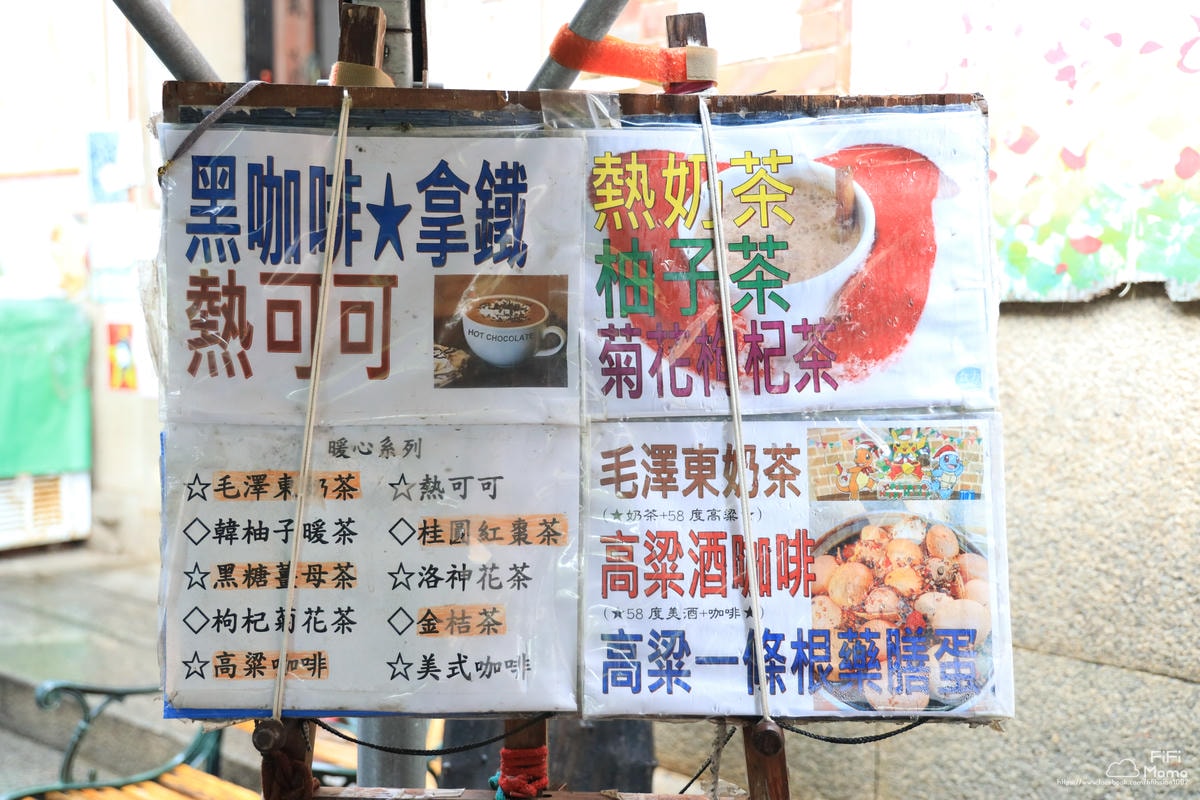 黑咖啡★拿鐵
熱可可
HOT CHOCOLATE
熱奶茶
柚子茶
菊花枸杞茶
暖心系列
☆毛澤東奶茶
☆熱可可
◇韓柚子暖茶
◇桂圓紅棗茶
☆黑糖薑母茶
☆洛神花茶
◇枸杞菊花茶
◇金桔茶
☆高粱咖啡
☆美式咖啡
毛澤東奶茶
(★奶茶+58度高梁★)
高粱酒咖啡
(★58度美酒+咖啡★)
高粱一條根藥膳蛋
FiFi
Mama